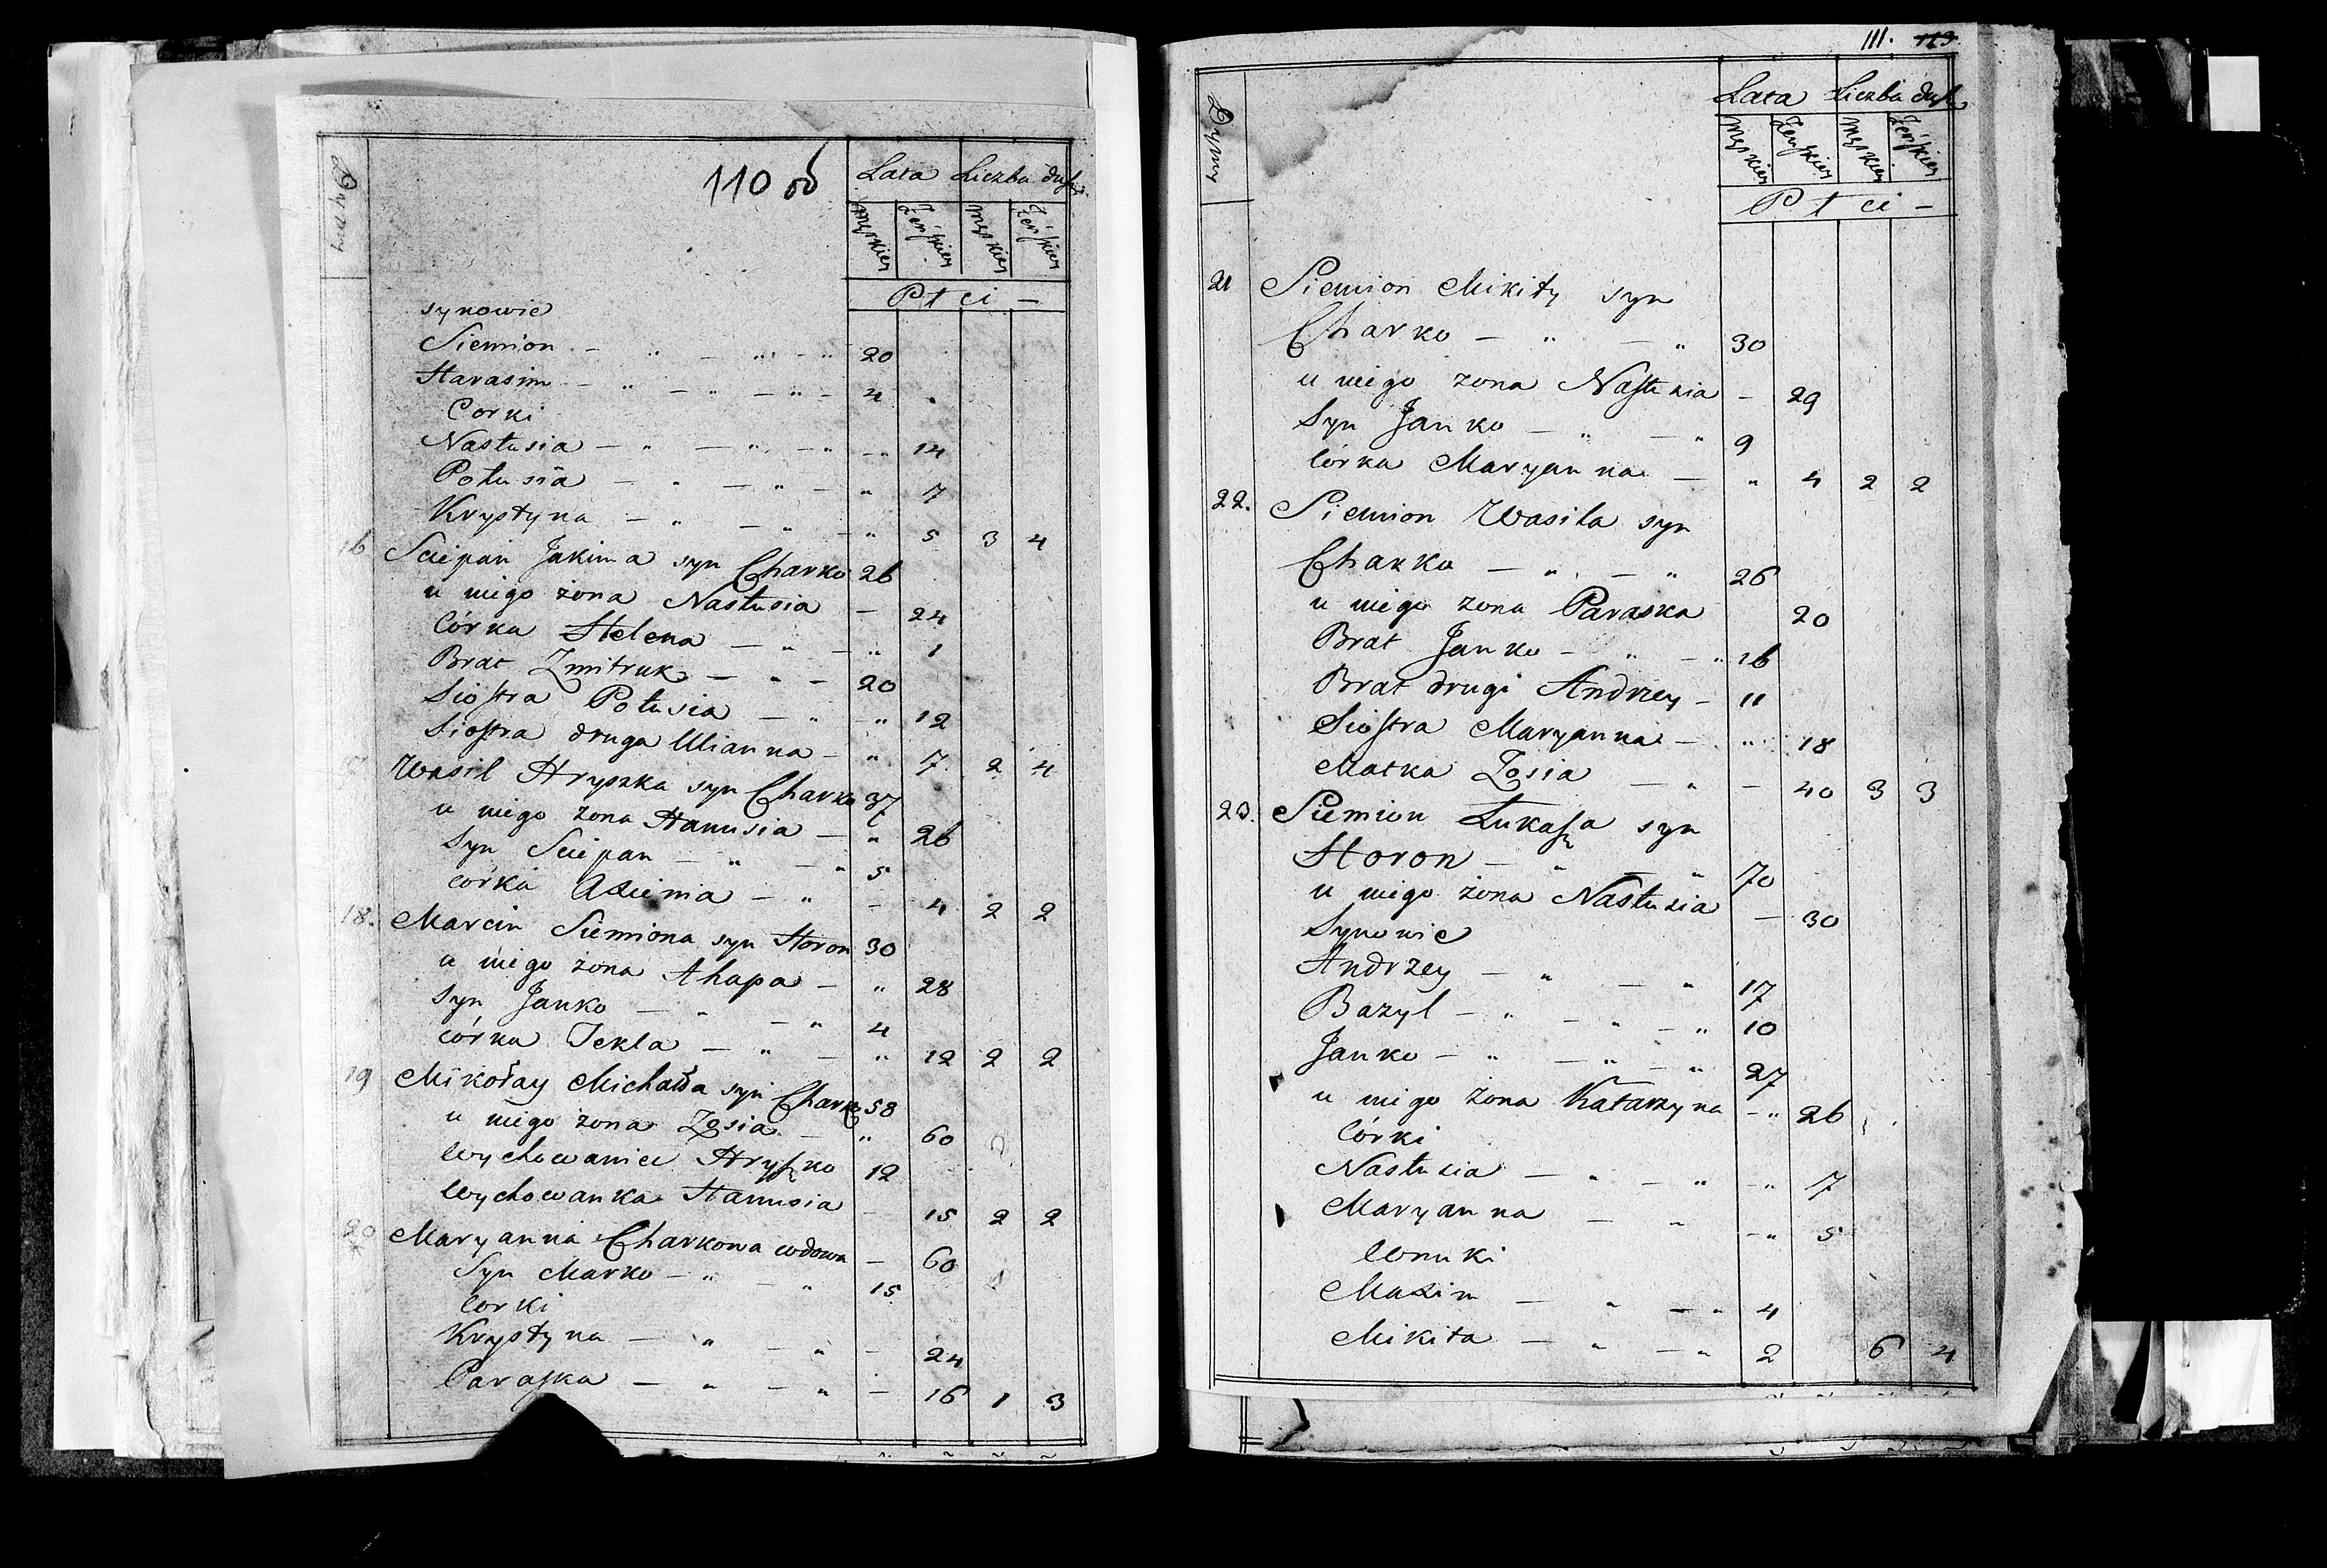 110 об
Dymy
Lata Liczba dusz
Męskiey Żeńskiey Męskiey Żeńskiey
Płci -
synowie
Siemion - " - " - " 20
Harasim - " - " - " - 4
Corki
Nastusia - " - " - " - " 14
Połusia - " - " - " 7
Krystyna - " - " - " 5 3 4
16 Sciepan Jakima syn Charko 26
u niego żona Nastusia - 24
Córka Helena - " - " 1
Brat Zmitruk - " - 20
Siostra Połusia - " - " 12
Siostra druga Ulianna - " 7 2 4
Wasil Hryszka syn Charko 37
u niego żona Hanusia - " 26
Syn Sciepan - " - " 5
córka Axienia - " - 4 2 2
18. Marcin Siemiona syn Horon 30
u niego żona Ahapa - " 28
syn Janko - " - " 4
córka Tekla - " - " 12 2 2
19 Mikołay Michała syn Charko 58
u niego żona Zosia - " 60
Wychowaniec Hryszko 12
Wychowanka Hanusia - 15 2 2
20 Maryanna Charkowa wdowa - 60
Syn Marko - " - " 15
Corki
Krystyna - " - " - 24
Paraska - " - " - 16 1 3
111. 113
Dymy
Lata Liczba dusz
Męskiey Żeńskiey Męskiey Żeńskiey
Płci -
21 Siemion Mikity syn
Charko - " - " 30
u niego żona Nastusia - 29
Syn Janko - " - " 9
Córka Maryanna - " 4 2 2
22. Siemion Wasila syn
Charko - " - " 26
u niego żona Paraska 20
Brat Janko - " - " 16
Brat drugi Andrzey - 11
Siostra Maryanna - " 18
Matka Zosia - " - 40 3 3
23. Siemion Łukasza syn
Horon - " - " 70
u niego żona Nastusia - 30
Synowie
Andrzey - " - " 17
Bazyl - " - " - " 10
Janko - " - " - " 27
u niego żona Katarzyna - " 26
Córki
Nastusia - " - " - " 7
Maryanna - " - " 5
Wnuki
Maxim - " - " 4
Mikita - " - " 2 6 4